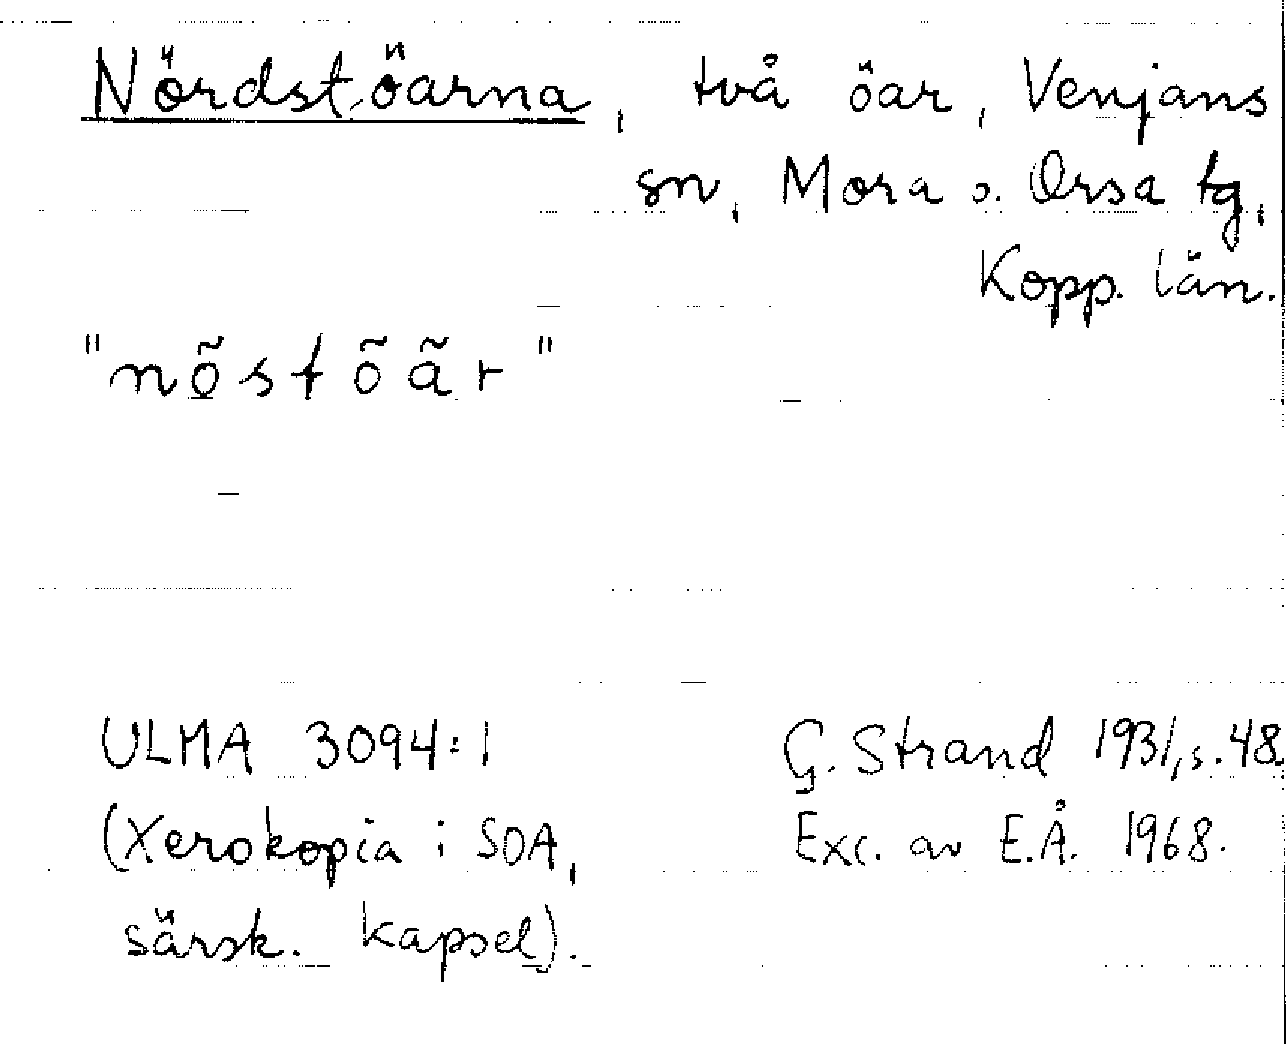 Nördst.öarna, två öar, Venjans
sn, Mora o. Orsa tg,
Kopp. län.
"nõstõãr"
ULMA 3094:1
(Xerokopia i SOA,
särsk. kapsel).
G. Strand 1931, s. 48.
Exc. av E.Å. 1968.